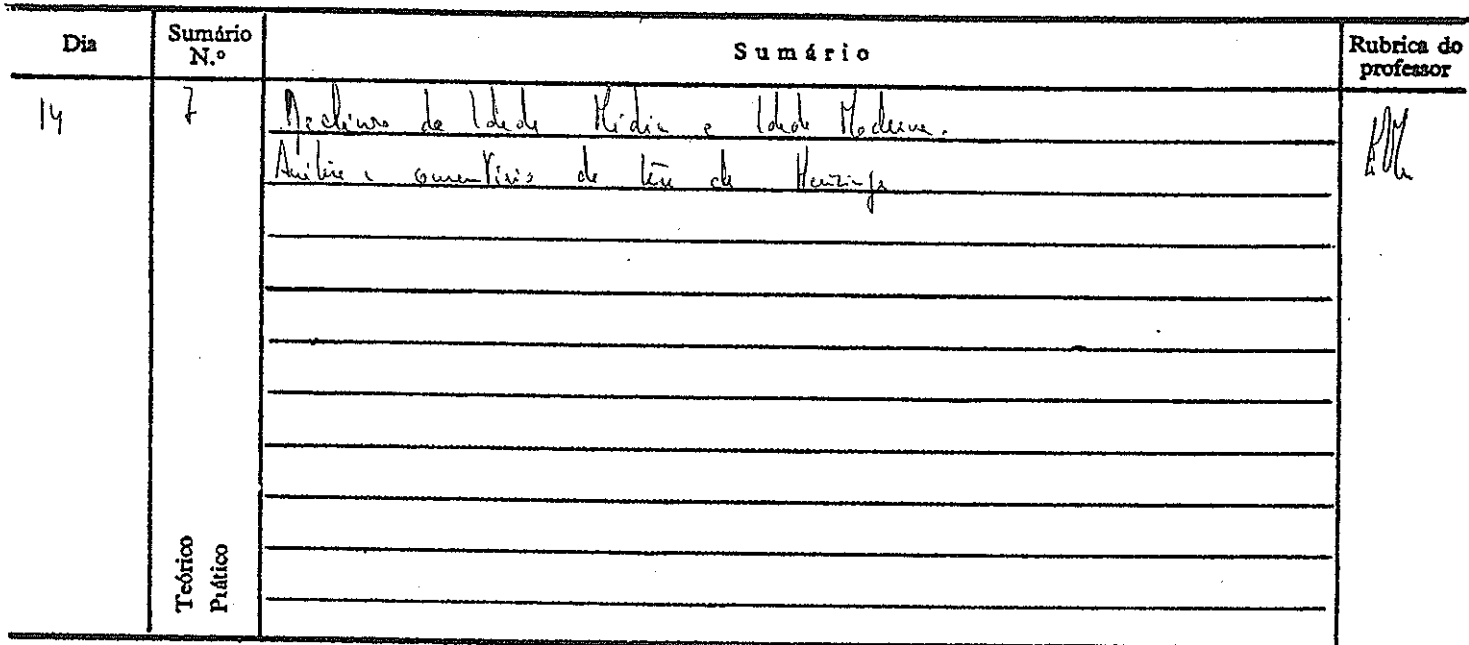 Dia
Sumário N.º
Sumário
Rubrica do professor
14
7
Declínio da Idade Média e Idade Moderna.
Análise e comentário da tese de Huizinga
Teórico
Prático